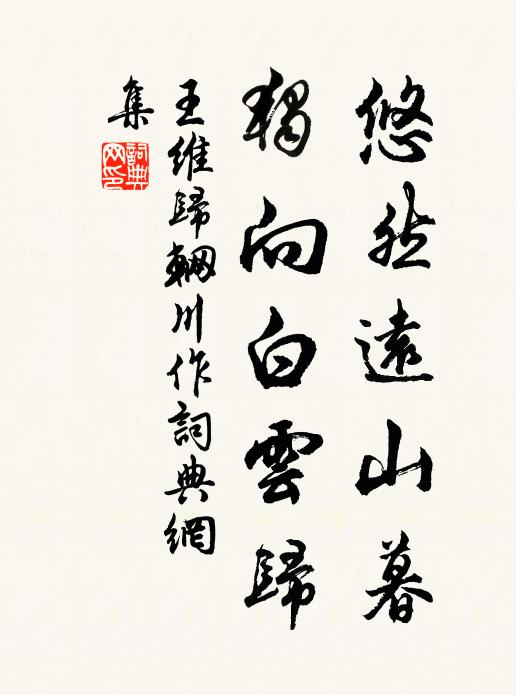 悠然遠山暮
獨向白雲歸
王維歸輞川作詞典網
集
詞典
网印